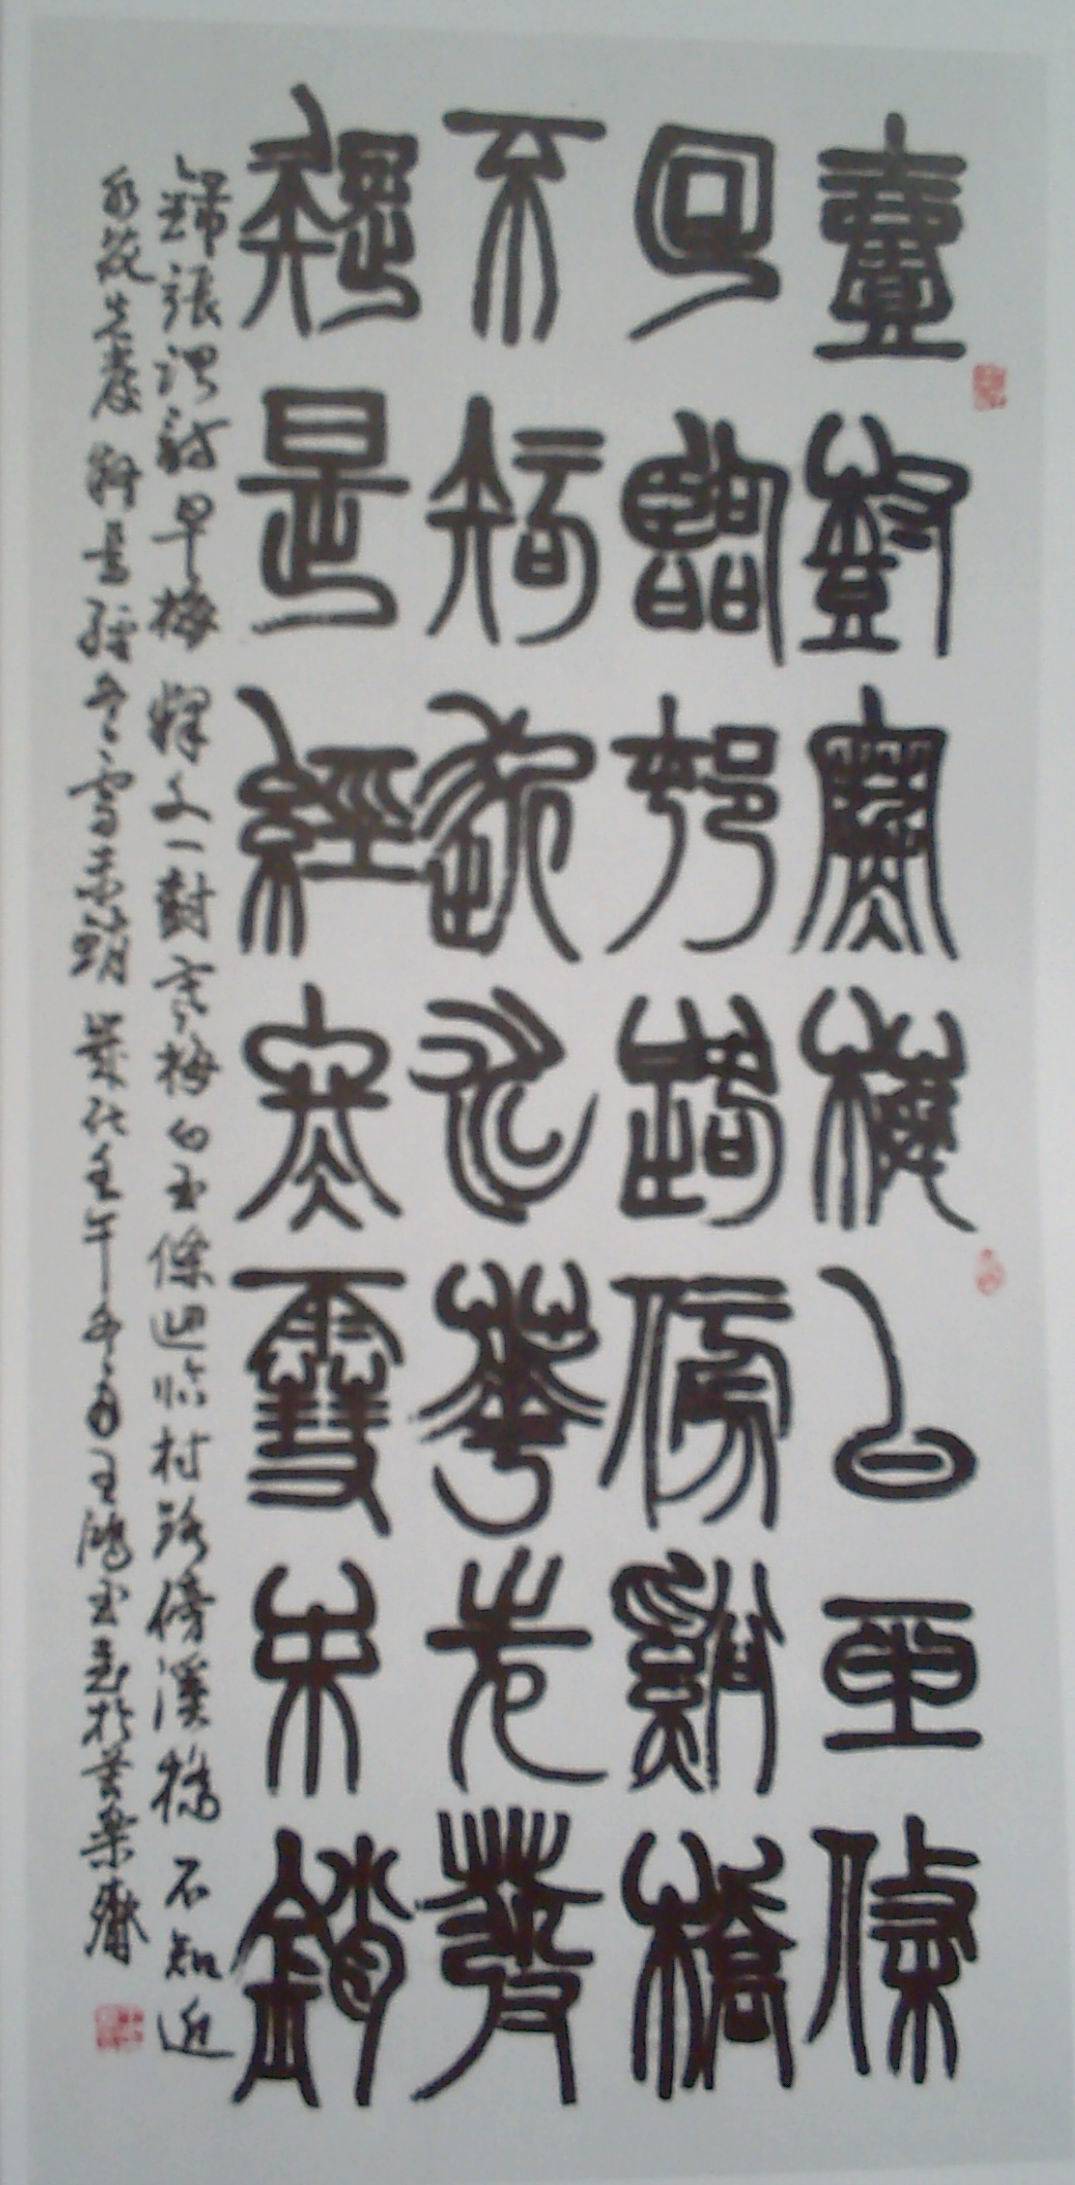 壹樹寒梅白玉條
回臨邨路傍谿橋
不知近水華先發
疑是經冬雪未銷
錄張謂詩早梅 釋文一樹寒梅白玉條迥臨村路傍溪橋不知近
水花先發疑是經冬雪未銷 歲在壬午冬月王鴻玉書於